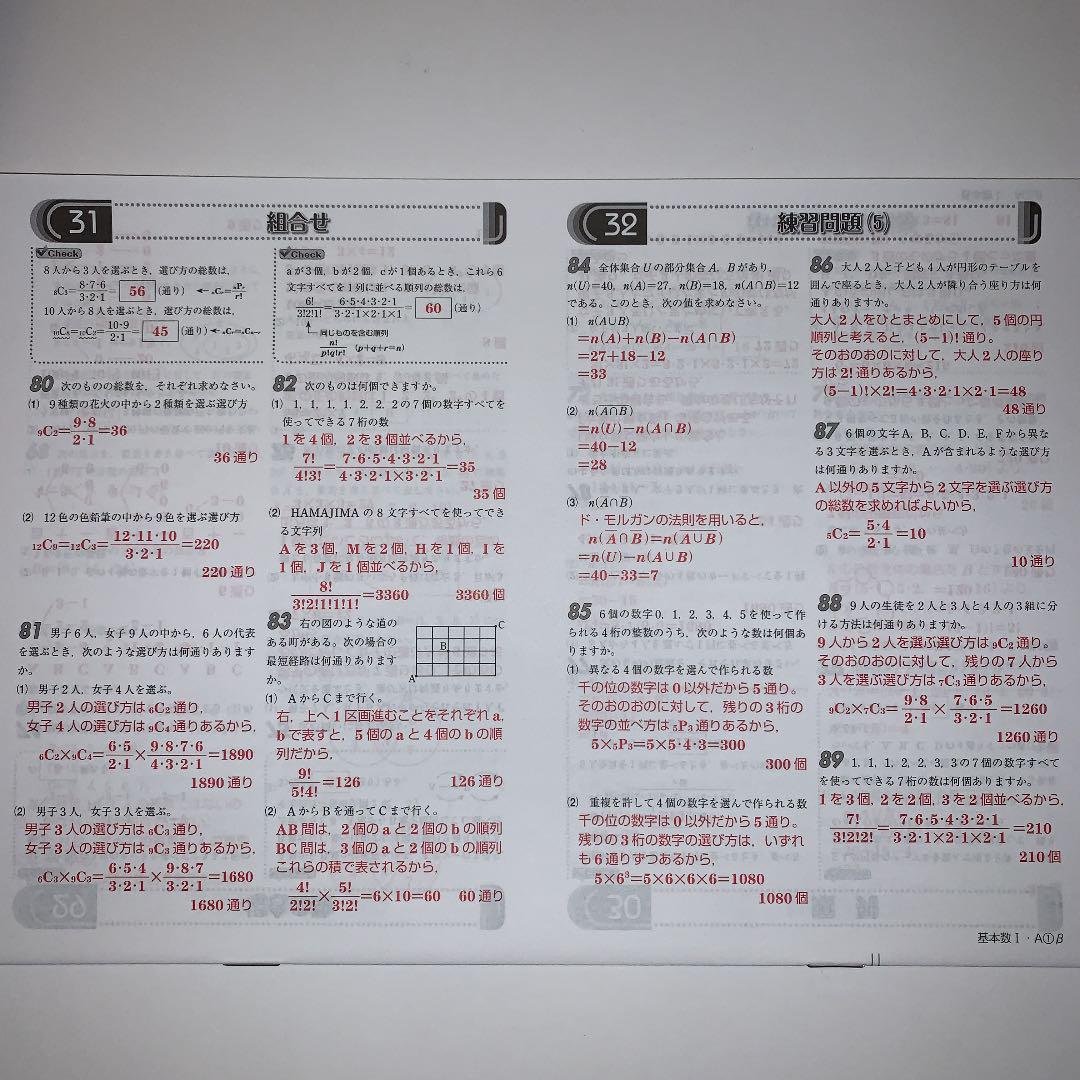 31
組合せ
Check
8人から3人を選ぶとき，選び方の総数は，
₈C₃=8·7·6/3·2·1=56(通り) ←ₙCᵣ=ₙPᵣ/r!
10人から8人を選ぶとき，選び方の総数は，
₁₀C₈=₁₀C₂=10·9/2·1=45(通り) ←ₙCᵣ=ₙCₙ₋ᵣ
Check
aが3個，bが2個，cが1個あるとき，これら6
文字すべてを1列に並べる順列の総数は，
6!/3!2!1!=6·5·4·3·2·1/3·2·1×2·1×1=60(通り)
同じものを含む順列
n!/p!q!r! (p+q+r=n)
80 次のものの総数を，それぞれ求めなさい。
(1) 9種類の花火の中から2種類を選ぶ選び方
₉C₂=9·8/2·1=36
36通り
(2) 12色の色鉛筆の中から9色を選ぶ選び方
₁₂C₉=₁₂C₃=12·11·10/3·2·1=220
220通り
81 男子6人，女子9人の中から，6人の代表
を選ぶとき，次のような選び方は何通りあります
か。
(1) 男子2人，女子4人を選ぶ。
男子2人の選び方は₆C₂通り，
女子4人の選び方は₉C₄通りあるから，
₆C₂×₉C₄=6·5/2·1×9·8·7·6/4·3·2·1=1890
1890通り
(2) 男子3人，女子3人を選ぶ。
男子3人の選び方は₆C₃通り，
女子3人の選び方は₉C₃通りあるから，
₆C₃×₉C₃=6·5·4/3·2·1×9·8·7/3·2·1=1680
1680通り
82 次のものは何個できますか。
(1) 1，1，1，1，2，2，2の7個の数字すべてを
使ってできる7桁の数
1を4個，2を3個並べるから，
7!/4!3!=7·6·5·4·3·2·1/4·3·2·1×3·2·1=35
35個
(2) HAMAJIMAの8文字すべてを使ってでき
る文字列
Aを3個，Mを2個，Hを1個，Iを
1個，Jを1個並べるから，
8!/3!2!1!1!1!=3360 3360個
83 右の図のような道の
ある町がある。次の場合の
最短経路は何通りあります
か。
A
B
C
(1) AからCまで行く。
右，上へ1区画進むことをそれぞれa，
bで表すと，5個のaと4個のbの順
列だから，
9!/5!4!=126 126通り
(2) AからBを通ってCまで行く。
AB間は，2個のaと2個のbの順列
BC間は，3個のaと2個のbの順列
これらの積で表されるから，
4!/2!2!×5!/3!2!=6×10=60 60通り
32
練習問題(5)
84 全体集合Uの部分集合A，Bがあり，
n(U)=40，n(A)=27，n(B)=18，n(A∩B)=12
である。このとき，次の値を求めなさい。
(1) n(A∪B)
=n(A)+n(B)-n(A∩B)
=27+18-12
=33
(2) n(A∩B)
=n(U)-n(A∩B)
=40-12
=28
(3) n(A∩B)
ド・モルガンの法則を用いると，
n(A̅∩B̅)=n(A∪B)
=n(U)-n(A∪B)
=40-33=7
85 6個の数字0，1，2，3，4，5を使って作
られる4桁の整数のうち，次のような数は何個あ
りますか。
(1) 異なる4個の数字を選んで作られる数
千の位の数字は0以外だから5通り。
そのおのおのに対して，残りの3桁の
数字の並べ方は₅P₃通りあるから，
5×₅P₃=5×5·4·3=300
300個
(2) 重複を許して4個の数字を選んで作られる数
千の位の数字は0以外だから5通り。
残りの3桁の数字の選び方は，いずれ
も6通りずつあるから，
5×6³=5×6×6×6=1080
1080個
86 大人2人と子ども4人が円形のテーブルを
囲んで座るとき，大人2人が隣り合う座り方は何
通りありますか。
大人2人をひとまとめにして，5個の円
順列と考えると，(5-1)!通り。
そのおのおのに対して，大人2人の座り
方は2!通りあるから，
(5-1)!×2!=4·3·2·1×2·1=48
48通り
87 6個の文字A，B，C，D，E，Fから異な
る3文字を選ぶとき，Aが含まれるような選び方
は何通りありますか。
A以外の5文字から2文字を選ぶ選び方
の総数を求めればよいから，
₅C₂=5·4/2·1=10
10通り
88 9人の生徒を2人と3人と4人の3組に分
ける方法は何通りありますか。
9人から2人を選ぶ選び方は₉C₂通り。
そのおのおのに対して，残りの7人から
3人を選ぶ選び方は₇C₃通りあるから，
₉C₂×₇C₃=9·8/2·1×7·6·5/3·2·1=1260
1260通り
89 1，1，1，2，2，3，3の7個の数字すべて
を使ってできる7桁の数は何個ありますか。
1を3個，2を2個，3を2個並べるから，
7!/3!2!2!=7·6·5·4·3·2·1/3·2·1×2·1×2·1=210
210個
基本数Ⅰ・A①β